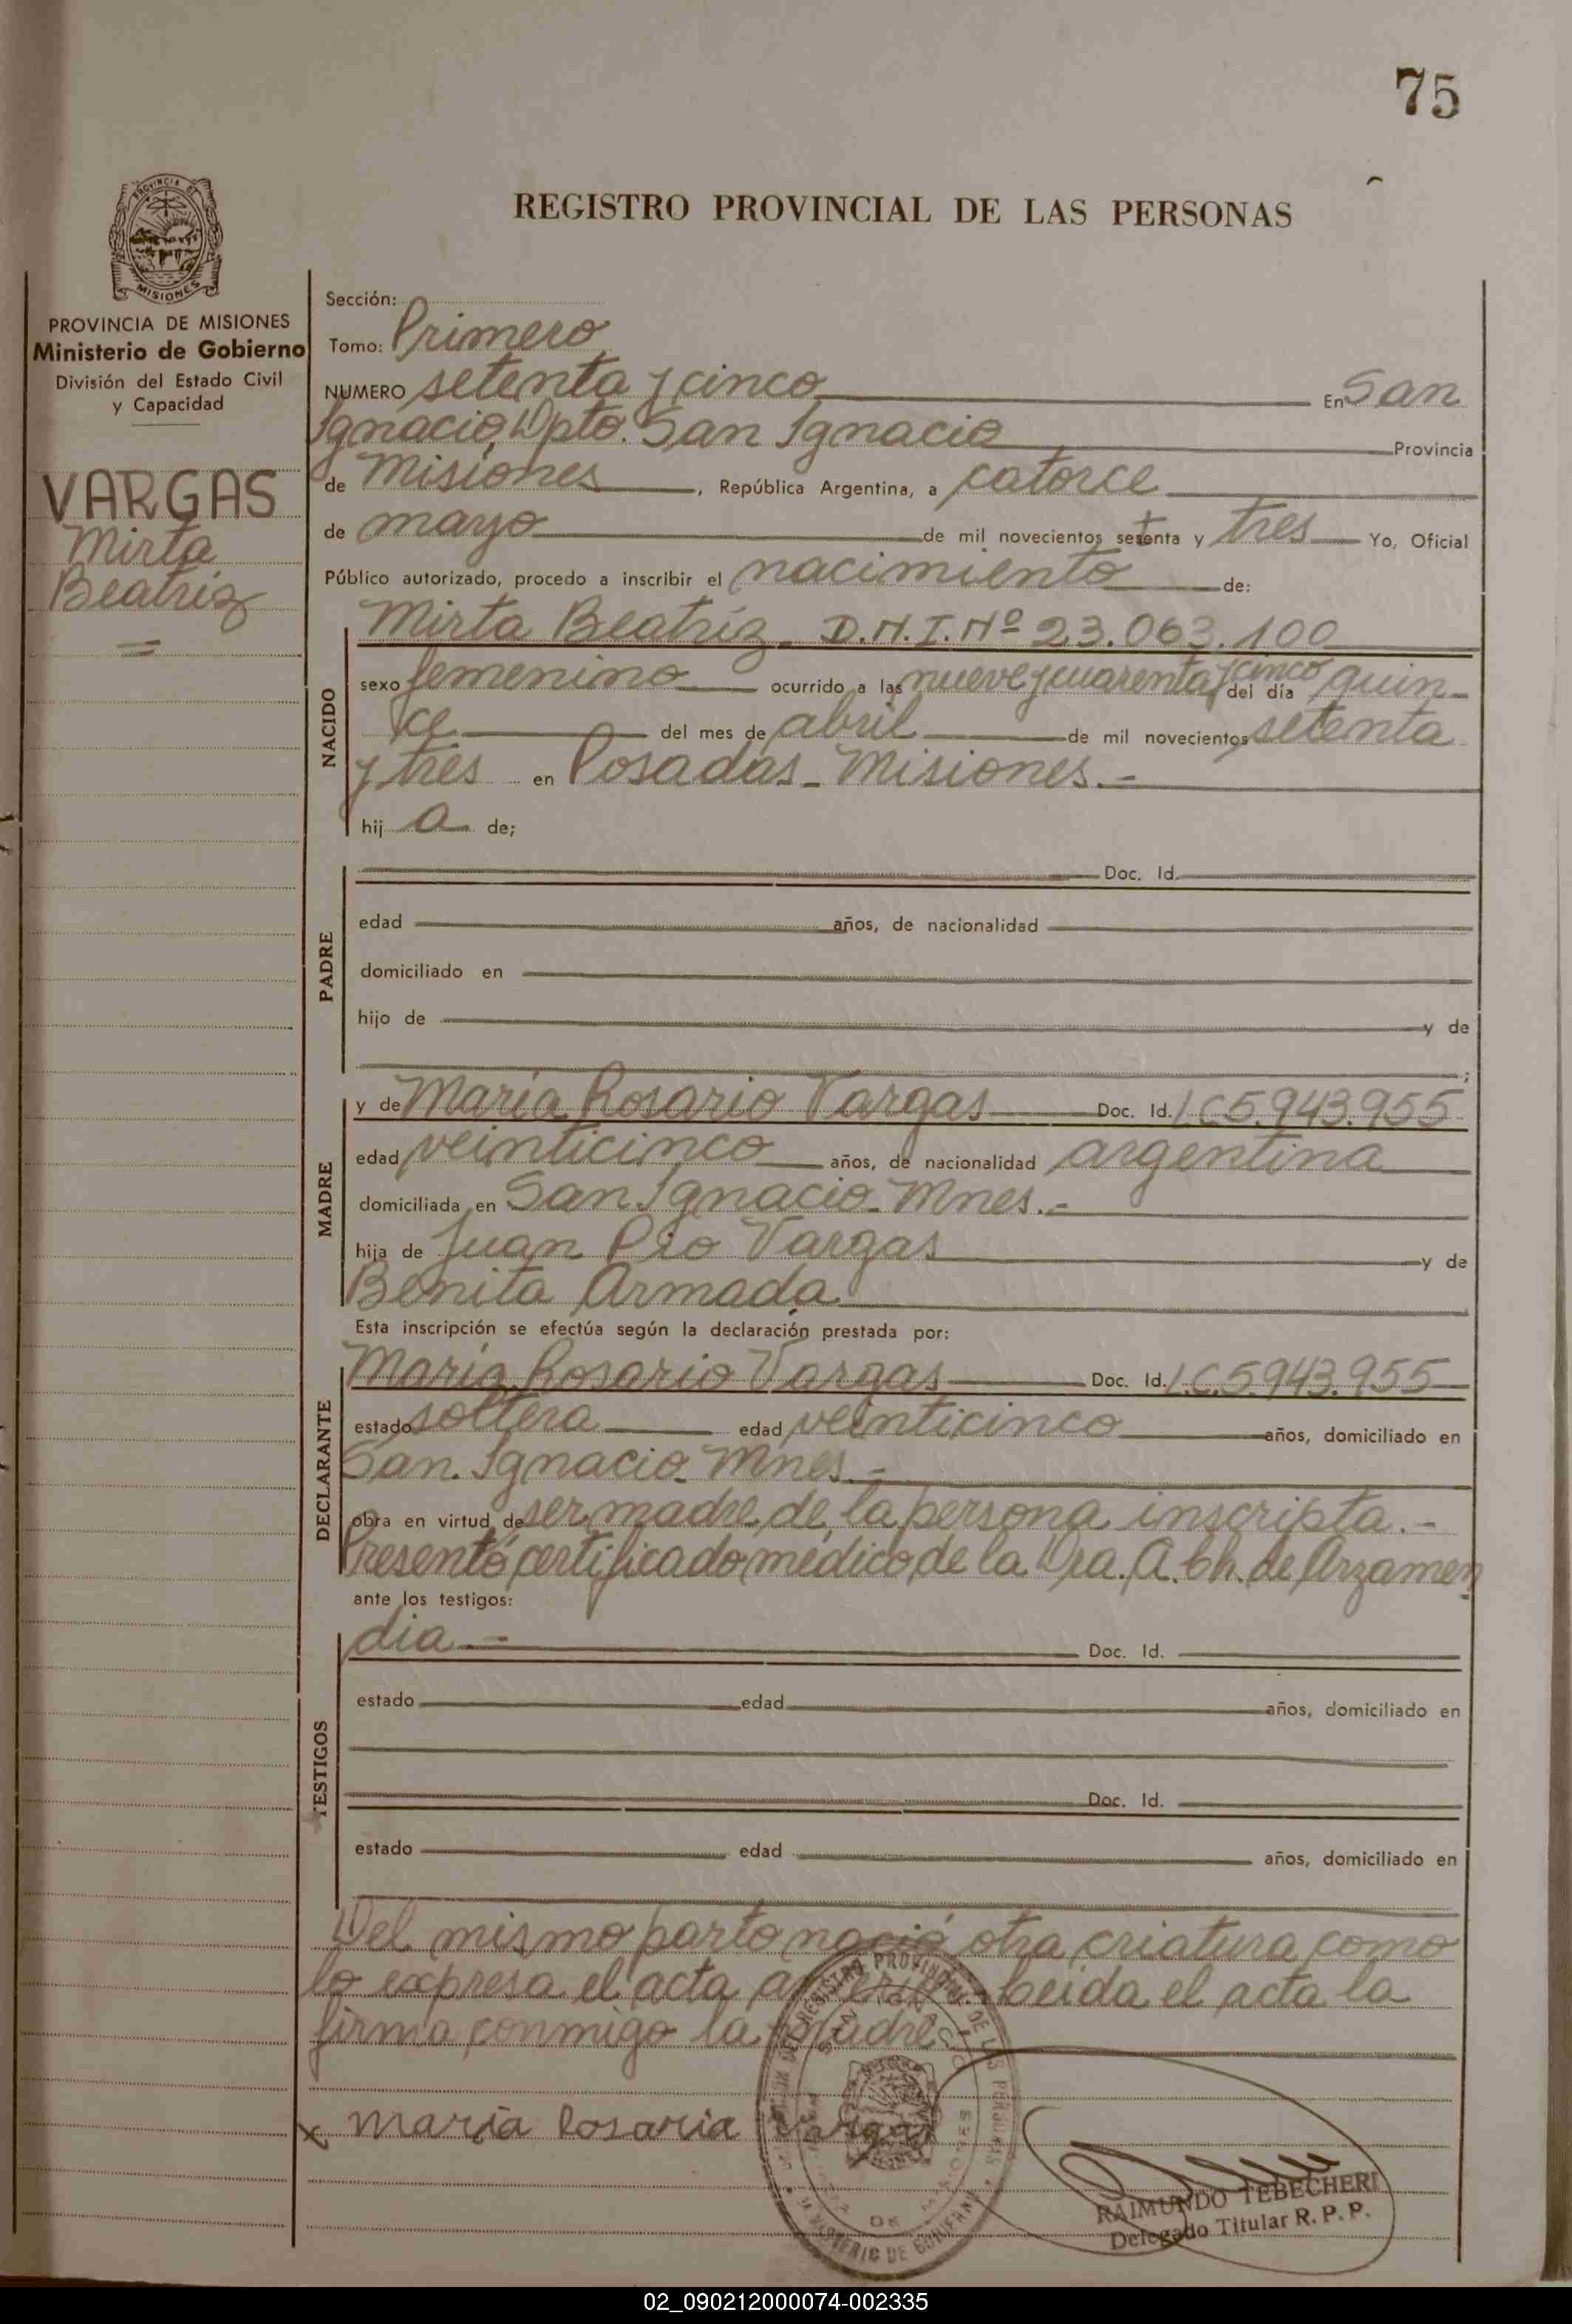 75
REGISTRO PROVINCIAL DE LAS PERSONAS
PROVINCIA DE MISIONES
PROVINCIA DE MISIONES
Ministerio de Gobierno
División del Estado Civil
y Capacidad
VARGAS
Mirta
Beatriz
Sección:
Tomo: Primero
NUMERO setenta y cinco En San
Ignacio, Dpto. San Ignacio Provincia
de Misiones, República Argentina, a catorce
de mayo de mil novecientos setenta y tres Yo, Oficial
Público autorizado, procedo a inscribir el nacimiento de:
NACIDO
Mirta Beatriz. D.N.I. Nº 23.063.100
sexo femenino ocurrido a las nueve y cuarenta y cinco del día quin-
ce del mes de abril de mil novecientos setenta
y tres en Posadas - Misiones.-
hij a de;
PADRE
Doc. Id.
edad años, de nacionalidad
domiciliado en
hijo de y de
;
MADRE
y de María Rosario Vargas Doc. Id. L.C. 5.943.955
edad veinticinco años, de nacionalidad argentina
domiciliada en San Ignacio - Mnes.-
hija de Juan Pío Vargas y de
Benita Armada
Esta inscripción se efectúa según la declaración prestada por:
DECLARANTE
María Rosario Vargas Doc. Id. L.C. 5.943.955
estado soltera edad veinticinco años, domiciliado en
San Ignacio - Mnes.-
obra en virtud de ser madre de la persona inscripta.-
Presentó certificado médico de la Dra. A. Ch. de Arzamen
ante los testigos:
TESTIGOS
dia.- Doc. Id.
estado edad años, domiciliado en
Doc. Id.
estado edad años, domiciliado en
Del mismo parto nació otra criatura como
lo expresa el acta anterior. Leida el acta la
firma conmigo la madre
x María Rosaria Vargas
RAIMUNDO TEBECHERI
Delegado Titular R. P. P.
02_090212000074-002335